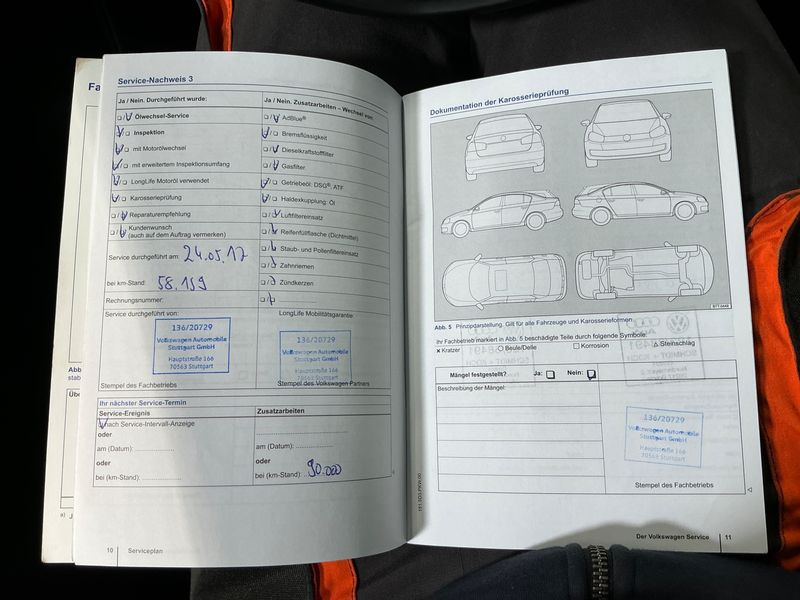 Fa
Service-Nachweis 3
Ja / Nein. Durchgeführt wurde:
Ölwechsel-Service
Inspektion
mit Motorölwechsel
mit erweitertem Inspektionsumfang
LongLife Motoröl verwendet
Karosserieprüfung
Reparaturempfehlung
Kundenwunsch
(auch auf dem Auftrag vermerken)
Service durchgeführt am: 24.05.17
bei km-Stand: 58.159
Rechnungsnummer:
Service durchgeführt von:
136/20729
Volkswagen Automobile
Stuttgart GmbH
Hauptstraße 166
70563 Stuttgart
Stempel des Fachbetriebs
Ja / Nein. Zusatzarbeiten – Wechsel von:
AdBlue®
Bremsflüssigkeit
Dieselkraftstofffilter
Gasfilter
Getriebeöl: DSG®, ATF
Haldexkupplung: Öl
Luftfiltereinsatz
Reifenfüllflasche (Dichtmittel)
Staub- und Pollenfiltereinsatz
Zahnriemen
Zündkerzen
LongLife Mobilitätsgarantie:
136/20729
Volkswagen Automobile
Stuttgart GmbH
Hauptstraße 166
70563 Stuttgart
Stempel des Volkswagen Partners
Ihr nächster Service-Termin
Service-Ereignis
nach Service-Intervall-Anzeige
oder
am (Datum):
oder
bei (km-Stand):
Zusatzarbeiten
am (Datum):
oder
bei (km-Stand): 90.000
10 Serviceplan
Dokumentation der Karosserieprüfung
Abb. 5 Prinzipdarstellung. Gilt für alle Fahrzeuge und Karosserieformen
Ihr Fachbetrieb markiert in Abb. 5 beschädigte Teile durch folgende Symbole:
× Kratzer ○ Beule/Delle □ Korrosion △ Steinschlag
Mängel festgestellt? Ja: Nein:
Beschreibung der Mängel:
136/20729
Volkswagen Automobile
Stuttgart GmbH
Hauptstraße 166
70563 Stuttgart
Stempel des Fachbetriebs
Der Volkswagen Service 11